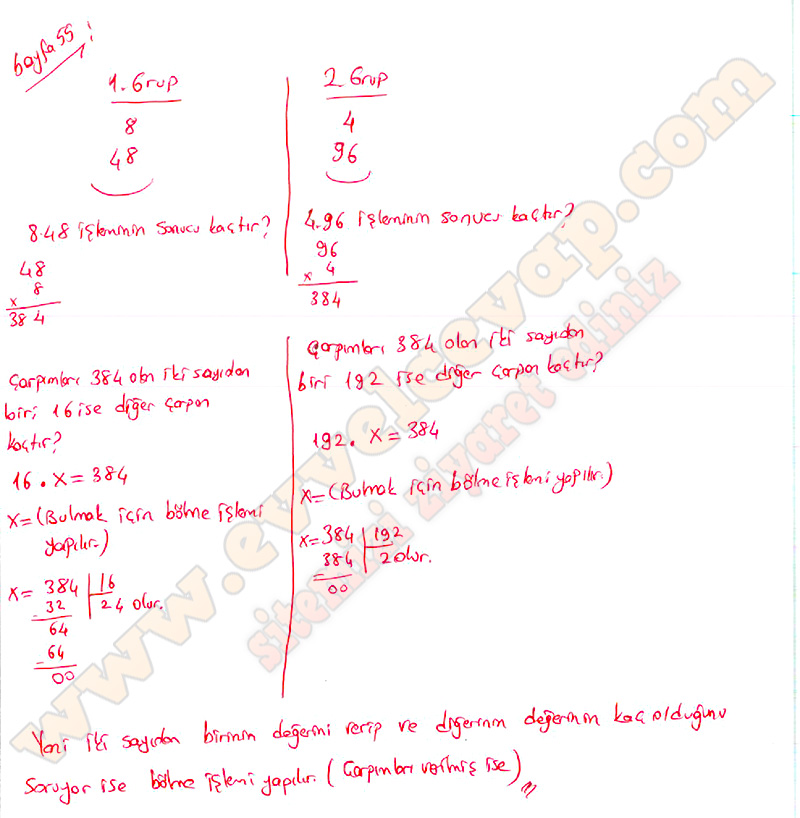 Sayfa 55;
1. Grup
8
48
8.48 işleminin sonucu kaçtır?
48
8
x
384
Çarpımları 384 olan iki sayıdan
biri 16 ise diğer çarpan
kaçtır?
16 . x = 384
x = (Bulmak için bölme işlemi
yapılır.)
x = 384 | 16
- 32 24 olur.
64
- 64
00
2. Grup
4
96
4.96 işleminin sonucu kaçtır?
96
x 4
384
Çarpımları 384 olan iki sayıdan
biri 192 ise diğer çarpan kaçtır?
192 . x = 384
x = (Bulmak için bölme işlemi yapılır.)
x = 384 | 192
- 384 2 olur.
00
Yani iki sayıdan birinin değerini verip ve diğerinin değerinin kaç olduğunu
soruyor ise bölme işlemi yapılır. (Çarpımları verilmiş ise)
www.evvelcevap.com
sitemizi ziyaret ediniz